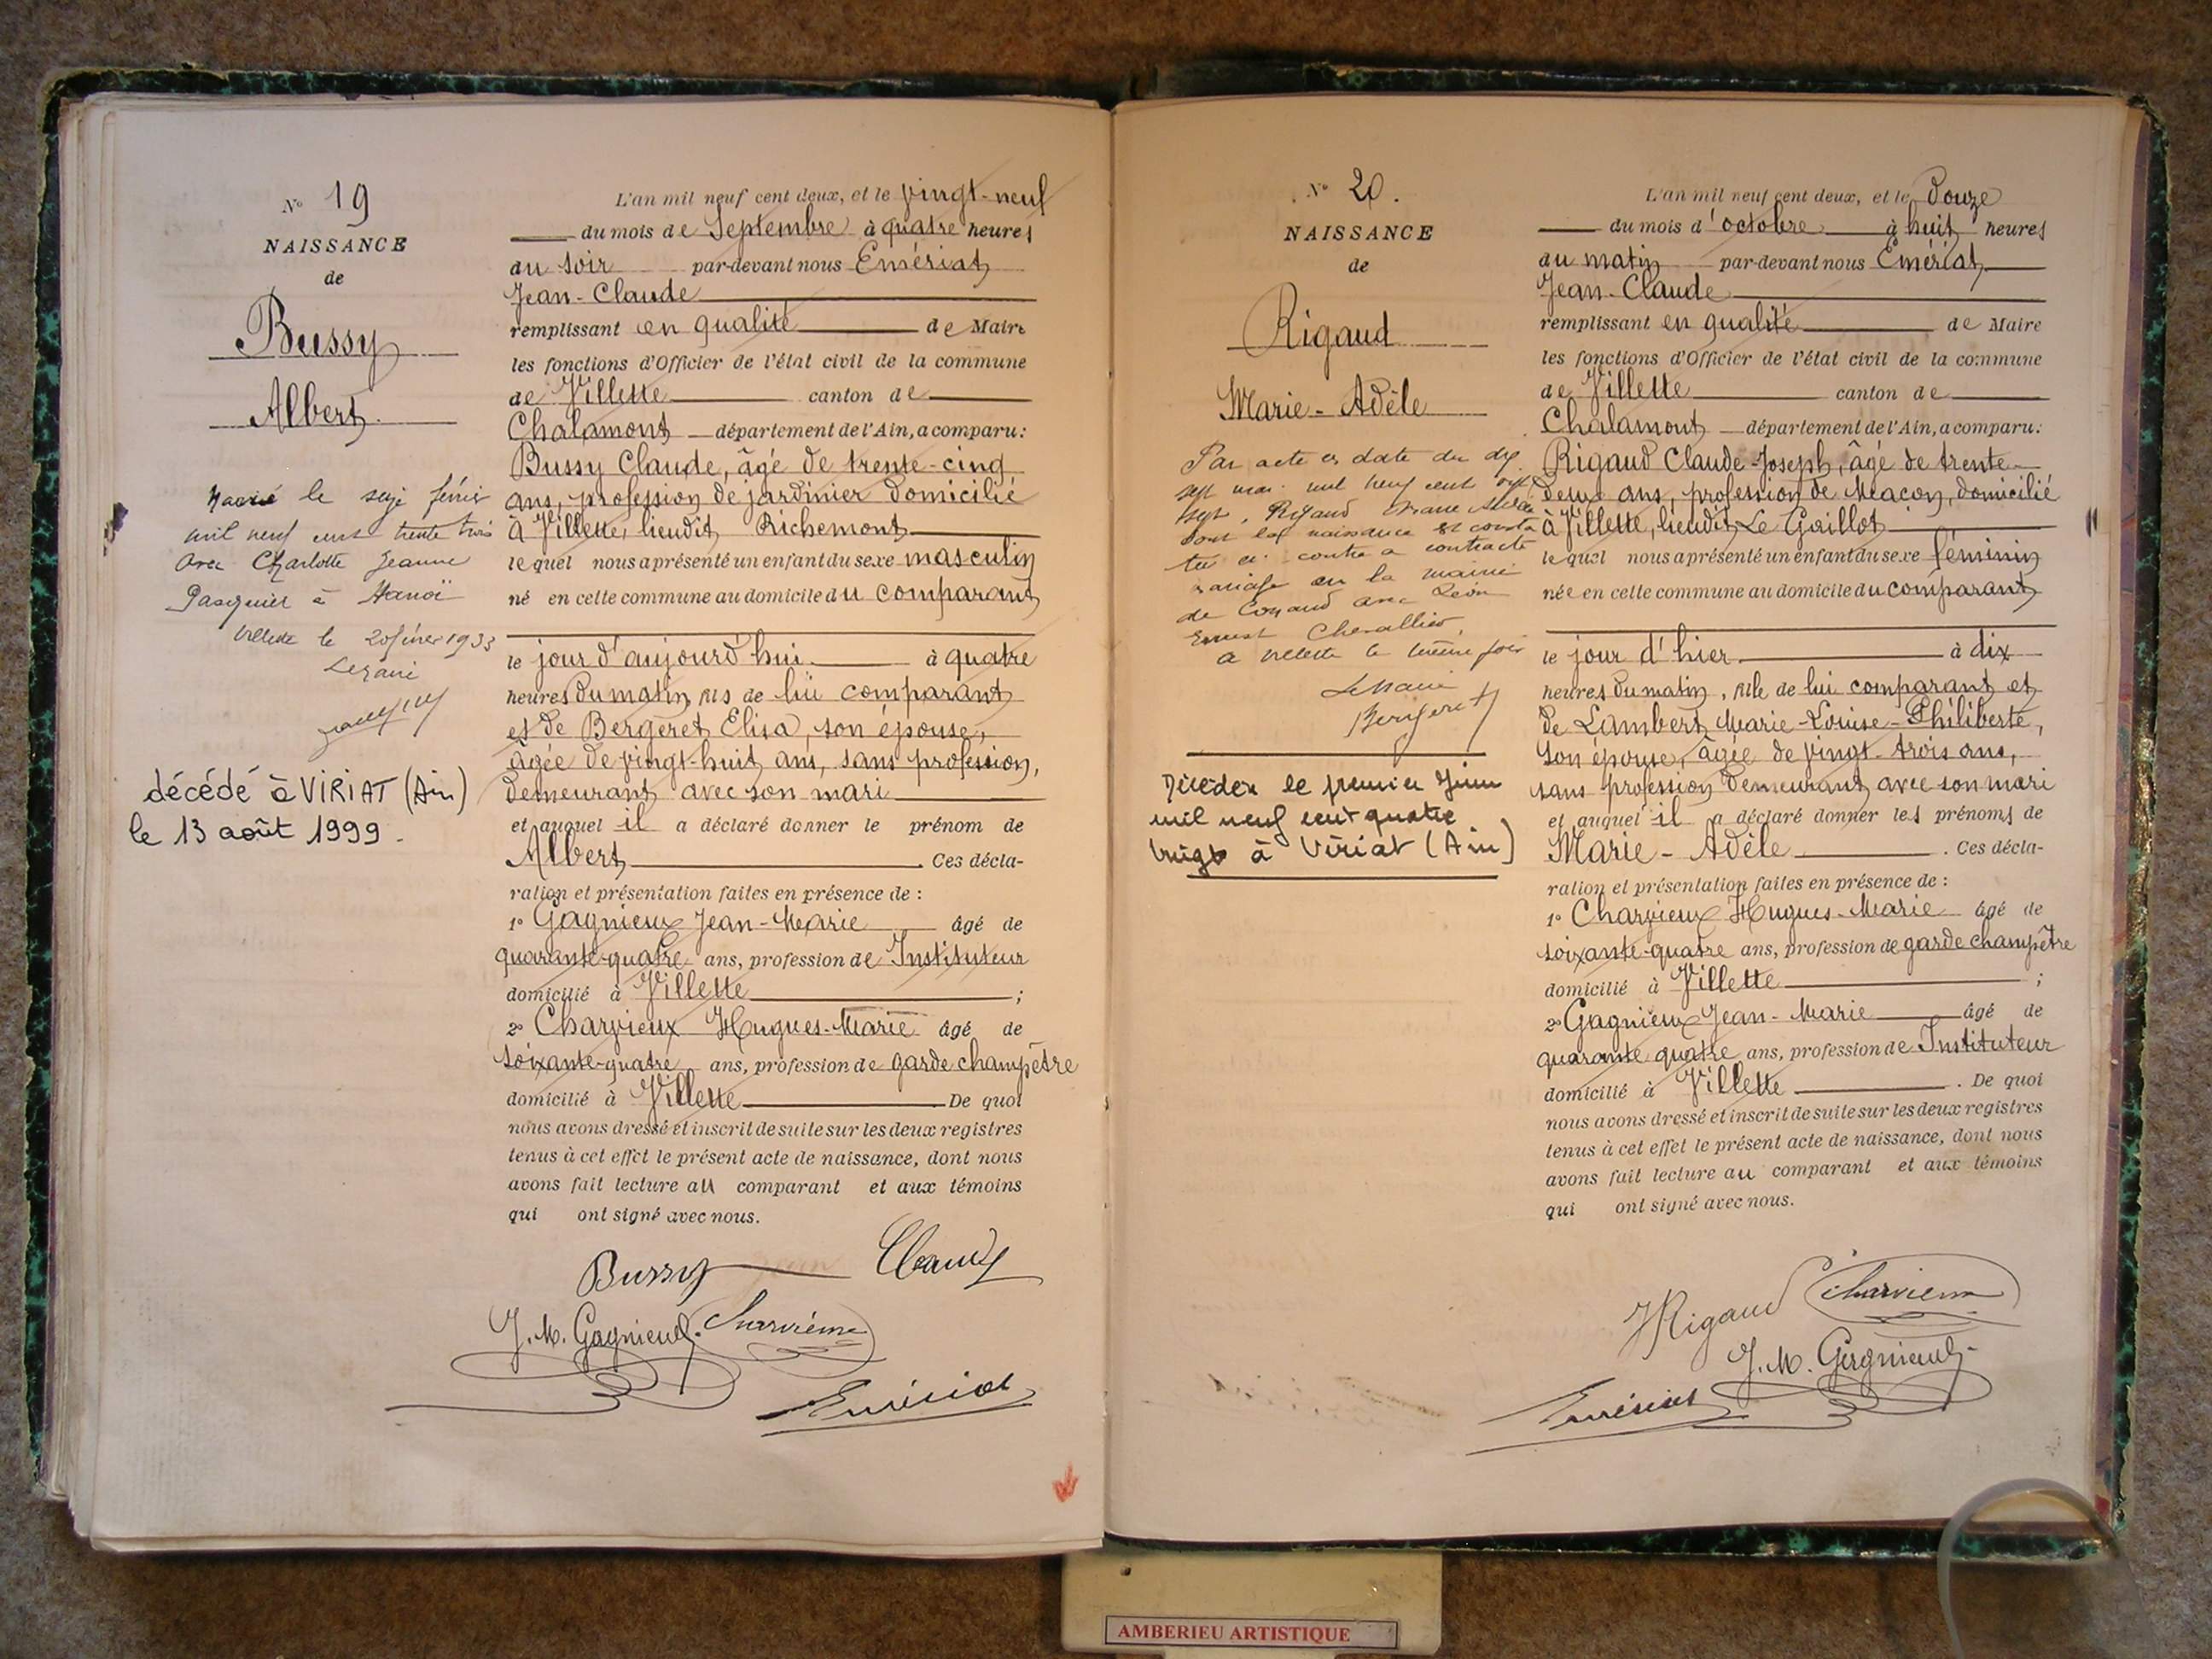 N° 19
NAISSANCE
de
Bussy
Albert
Marié le seize février
mil neuf cent trente trois
avec Charlotte Jeanne
Pasquier à Hanoï
Villette le 20 février 1933
Le maire
décédé à VIRIAT (Ain)
le 13 août 1999.
L'an mil neuf cent deux, et le vingt-neuf
du mois de Septembre à quatre heures
du soir par-devant nous Emériat
Jean-Claude
remplissant en qualité de Maire
les fonctions d'Officier de l'état civil de la commune
de Villette canton de
Chalamont département de l'Ain, a comparu:
Bussy Claude, âgé de trente-cinq
ans, profession de jardinier domicilié
à Villette, lieudit Richemont
lequel nous a présenté un enfant du sexe masculin
né en cette commune au domicile du comparant
le jour d'aujourd'hui à quatre
heures du matin, fils de lui comparant
et de Bergeret Elisa, son épouse,
âgée de vingt-huit ans, sans profession,
demeurant avec son mari
et auquel il a déclaré donner le prénom de
Albert. Ces décla-
ration et présentation faites en présence de :
1° Gagnieux Jean-Marie âgé de
quarante-quatre ans, profession de Instituteur
domicilié à Villette ;
2° Charvieux Hugues-Marie âgé de
soixante-quatre ans, profession de garde champêtre
domicilié à Villette De quoi
nous avons dressé et inscrit de suite sur les deux registres
tenus à cet effet le présent acte de naissance, dont nous
avons fait lecture au comparant et aux témoins
qui ont signé avec nous.
Bussy Claude
J. M. Gagnieux Charvieux
Emériat
N° 20.
NAISSANCE
de
Rigaud
Marie-Adèle
Par acte en date du dix
sept mai mil neuf cent vingt
sept, Rigaud Marie Adèle
dont la naissance est consta
tée ci-contre a contracté
mariage en la mairie
de avec Léon
Ernest Chevallier,
à Villette le même jour
Le Maire
Bergeret
Décédée le premier Juin
mil neuf cent quatre
vingt à Viriat (Ain)
L'an mil neuf cent deux, et le Douze
du mois d'octobre à huit heures
du matin par-devant nous Emériat
Jean-Claude
remplissant en qualité de Maire
les fonctions d'Officier de l'état civil de la commune
de Villette canton de
Chalamont département de l'Ain, a comparu:
Rigaud Claude-Joseph, âgé de trente-
deux ans, profession de Maçon, domicilié
à Villette, lieudit Le Gaillot
lequel nous a présenté un enfant du sexe féminin
née en cette commune au domicile du comparant
le jour d'hier à dix
heures du matin, fille de lui comparant et
de Lambert Marie-Louise-Philiberte,
son épouse, âgée de vingt-trois ans,
sans profession demeurant avec son mari
et auquel il a déclaré donner les prénoms de
Marie-Adèle. Ces décla-
ration et présentation faites en présence de :
1° Charvieux Hugues-Marie âgé de
soixante-quatre ans, profession de garde champêtre
domicilié à Villette ;
2° Gagnieux Jean-Marie âgé de
quarante quatre ans, profession de Instituteur
domicilié à Villette. De quoi
nous avons dressé et inscrit de suite sur les deux registres
tenus à cet effet le présent acte de naissance, dont nous
avons fait lecture au comparant et aux témoins
qui ont signé avec nous.
JRigaud Charvieux
J. M. Gagnieux
Emériat
AMBERIEU ARTISTIQUE